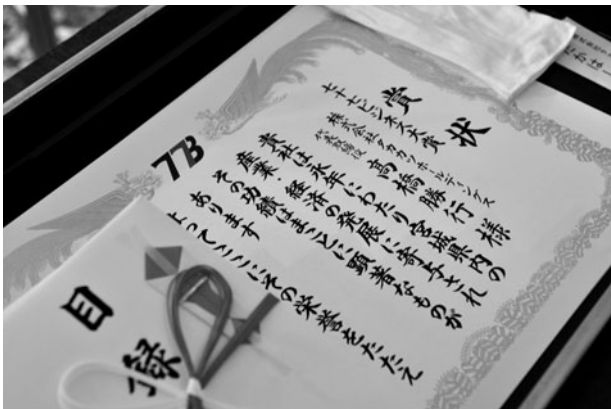 賞状
七十七ビジネス大賞
株式会社タカカツホールディングス
代表取締役 高橋勝行 様
貴社は永年にわたり宮城県内の
産業・経済の発展に寄与され
その功績はまことに顕著なものが
あります
よってここにその栄誉をたたえ
77B
目録